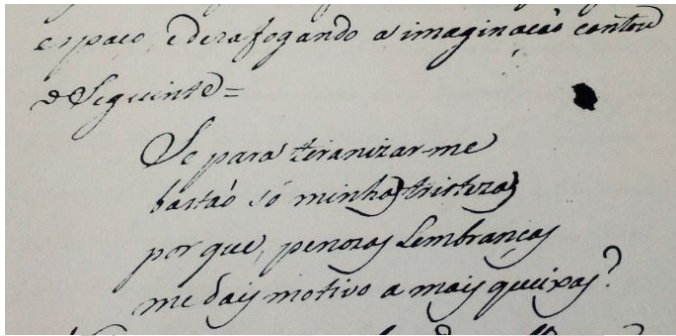 espaco, edezafogando a imaginacaõ cantou
o Seguinte=
Se para teranizar-me
bastaõ só minhas tristezas
por que, penozas Lembranças
me dais motivo a mais queixas?